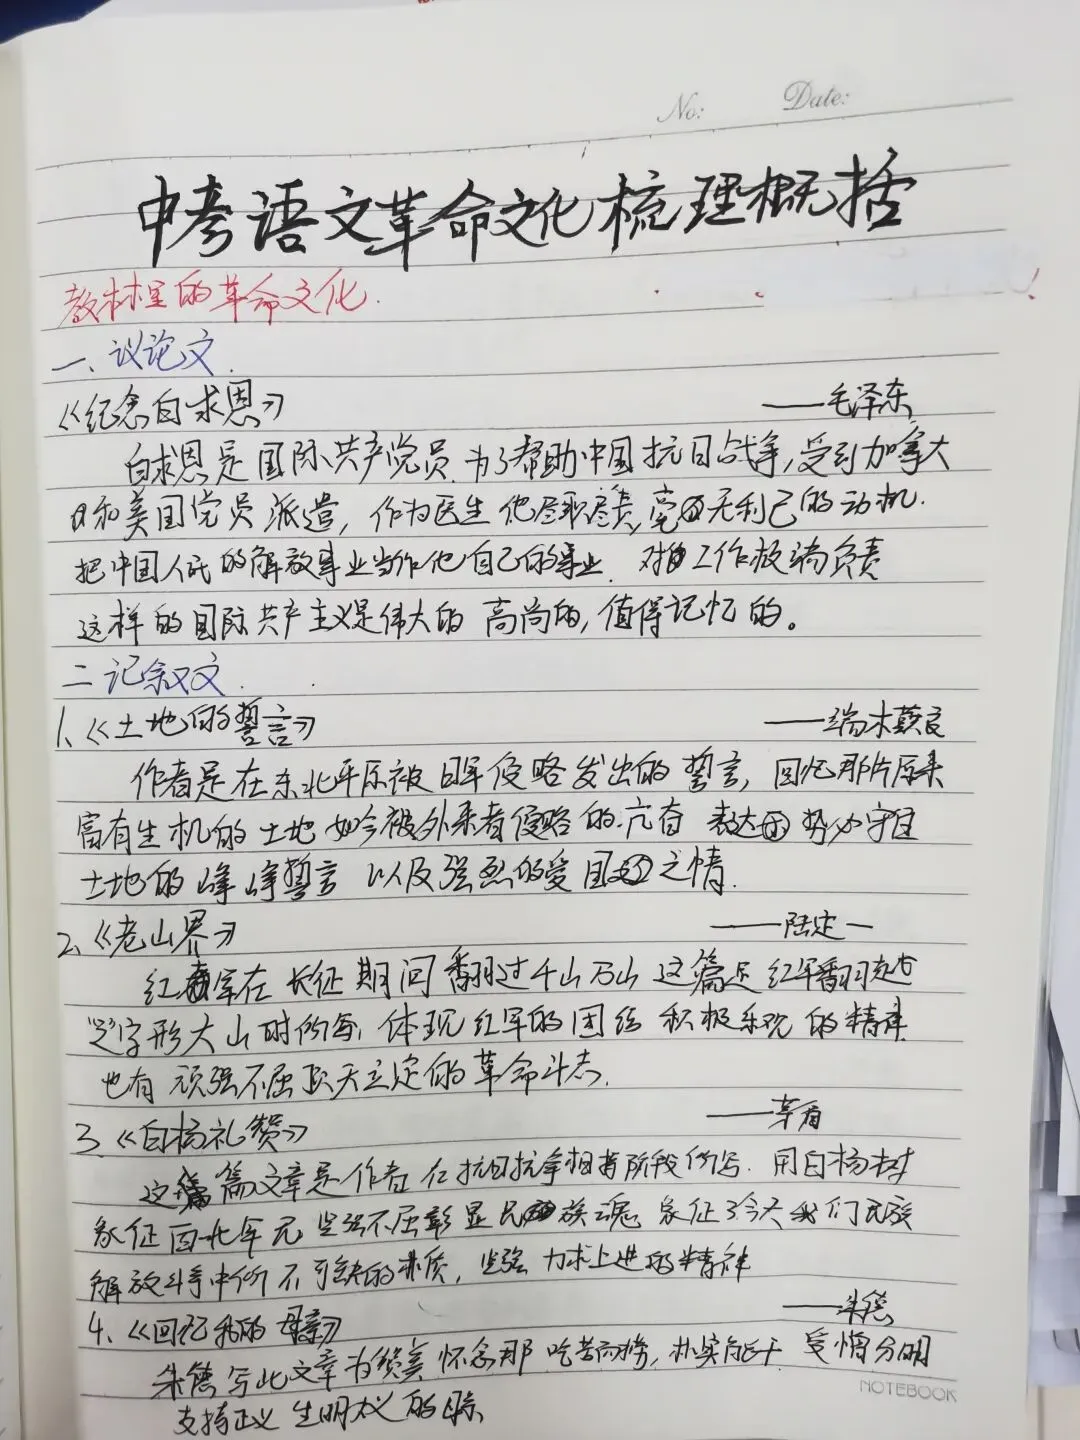 No:
Date:
中考语文革命文化梳理概括
教材里的革命文化.
一、议论文.
《纪念白求恩》 ——毛泽东
白求恩是国际共产党员.为了帮助中国抗日战争,受到加拿大
和美国党员派遣,作为医生他尽职尽责,毫无利己的动机.
把中国人民的解放事业当作他自己的事业.对工作极端负责
这样的国际共产主义是伟大的 高尚的,值得记忆的。
二 记叙文.
1、《土地的誓言》 ——端木蕻良
作者是在东北平原被日军侵略发出的誓言,回忆那片原来
富有生机的土地 如今被外来者侵略的 表达 势必夺回
土地的 铮铮誓言 以及强烈的爱国之情.
2、《老山界》 ——陆定一
红军在 长征 期间 翻过千山万山 这篇是 红军翻越
“之”字形大山时所写,体现红军的团结 积极乐观 的精神
也有 顽强不屈顶天立地的革命斗志.
3、《白杨礼赞》 ——茅盾
这篇文章是作者在抗日抗争相持阶段所写.用白杨树
象征西北军民 坚强不屈彰显民族魂 象征了今天我们民族
解放斗争中所不可缺的朴质,坚强 力求上进的精神
4、《回忆我的母亲》 ——朱德
朱德写此文章为赞美怀念那 吃苦耐劳,朴实能干 爱憎分明
支持正义 的母亲
NOTEBOOK